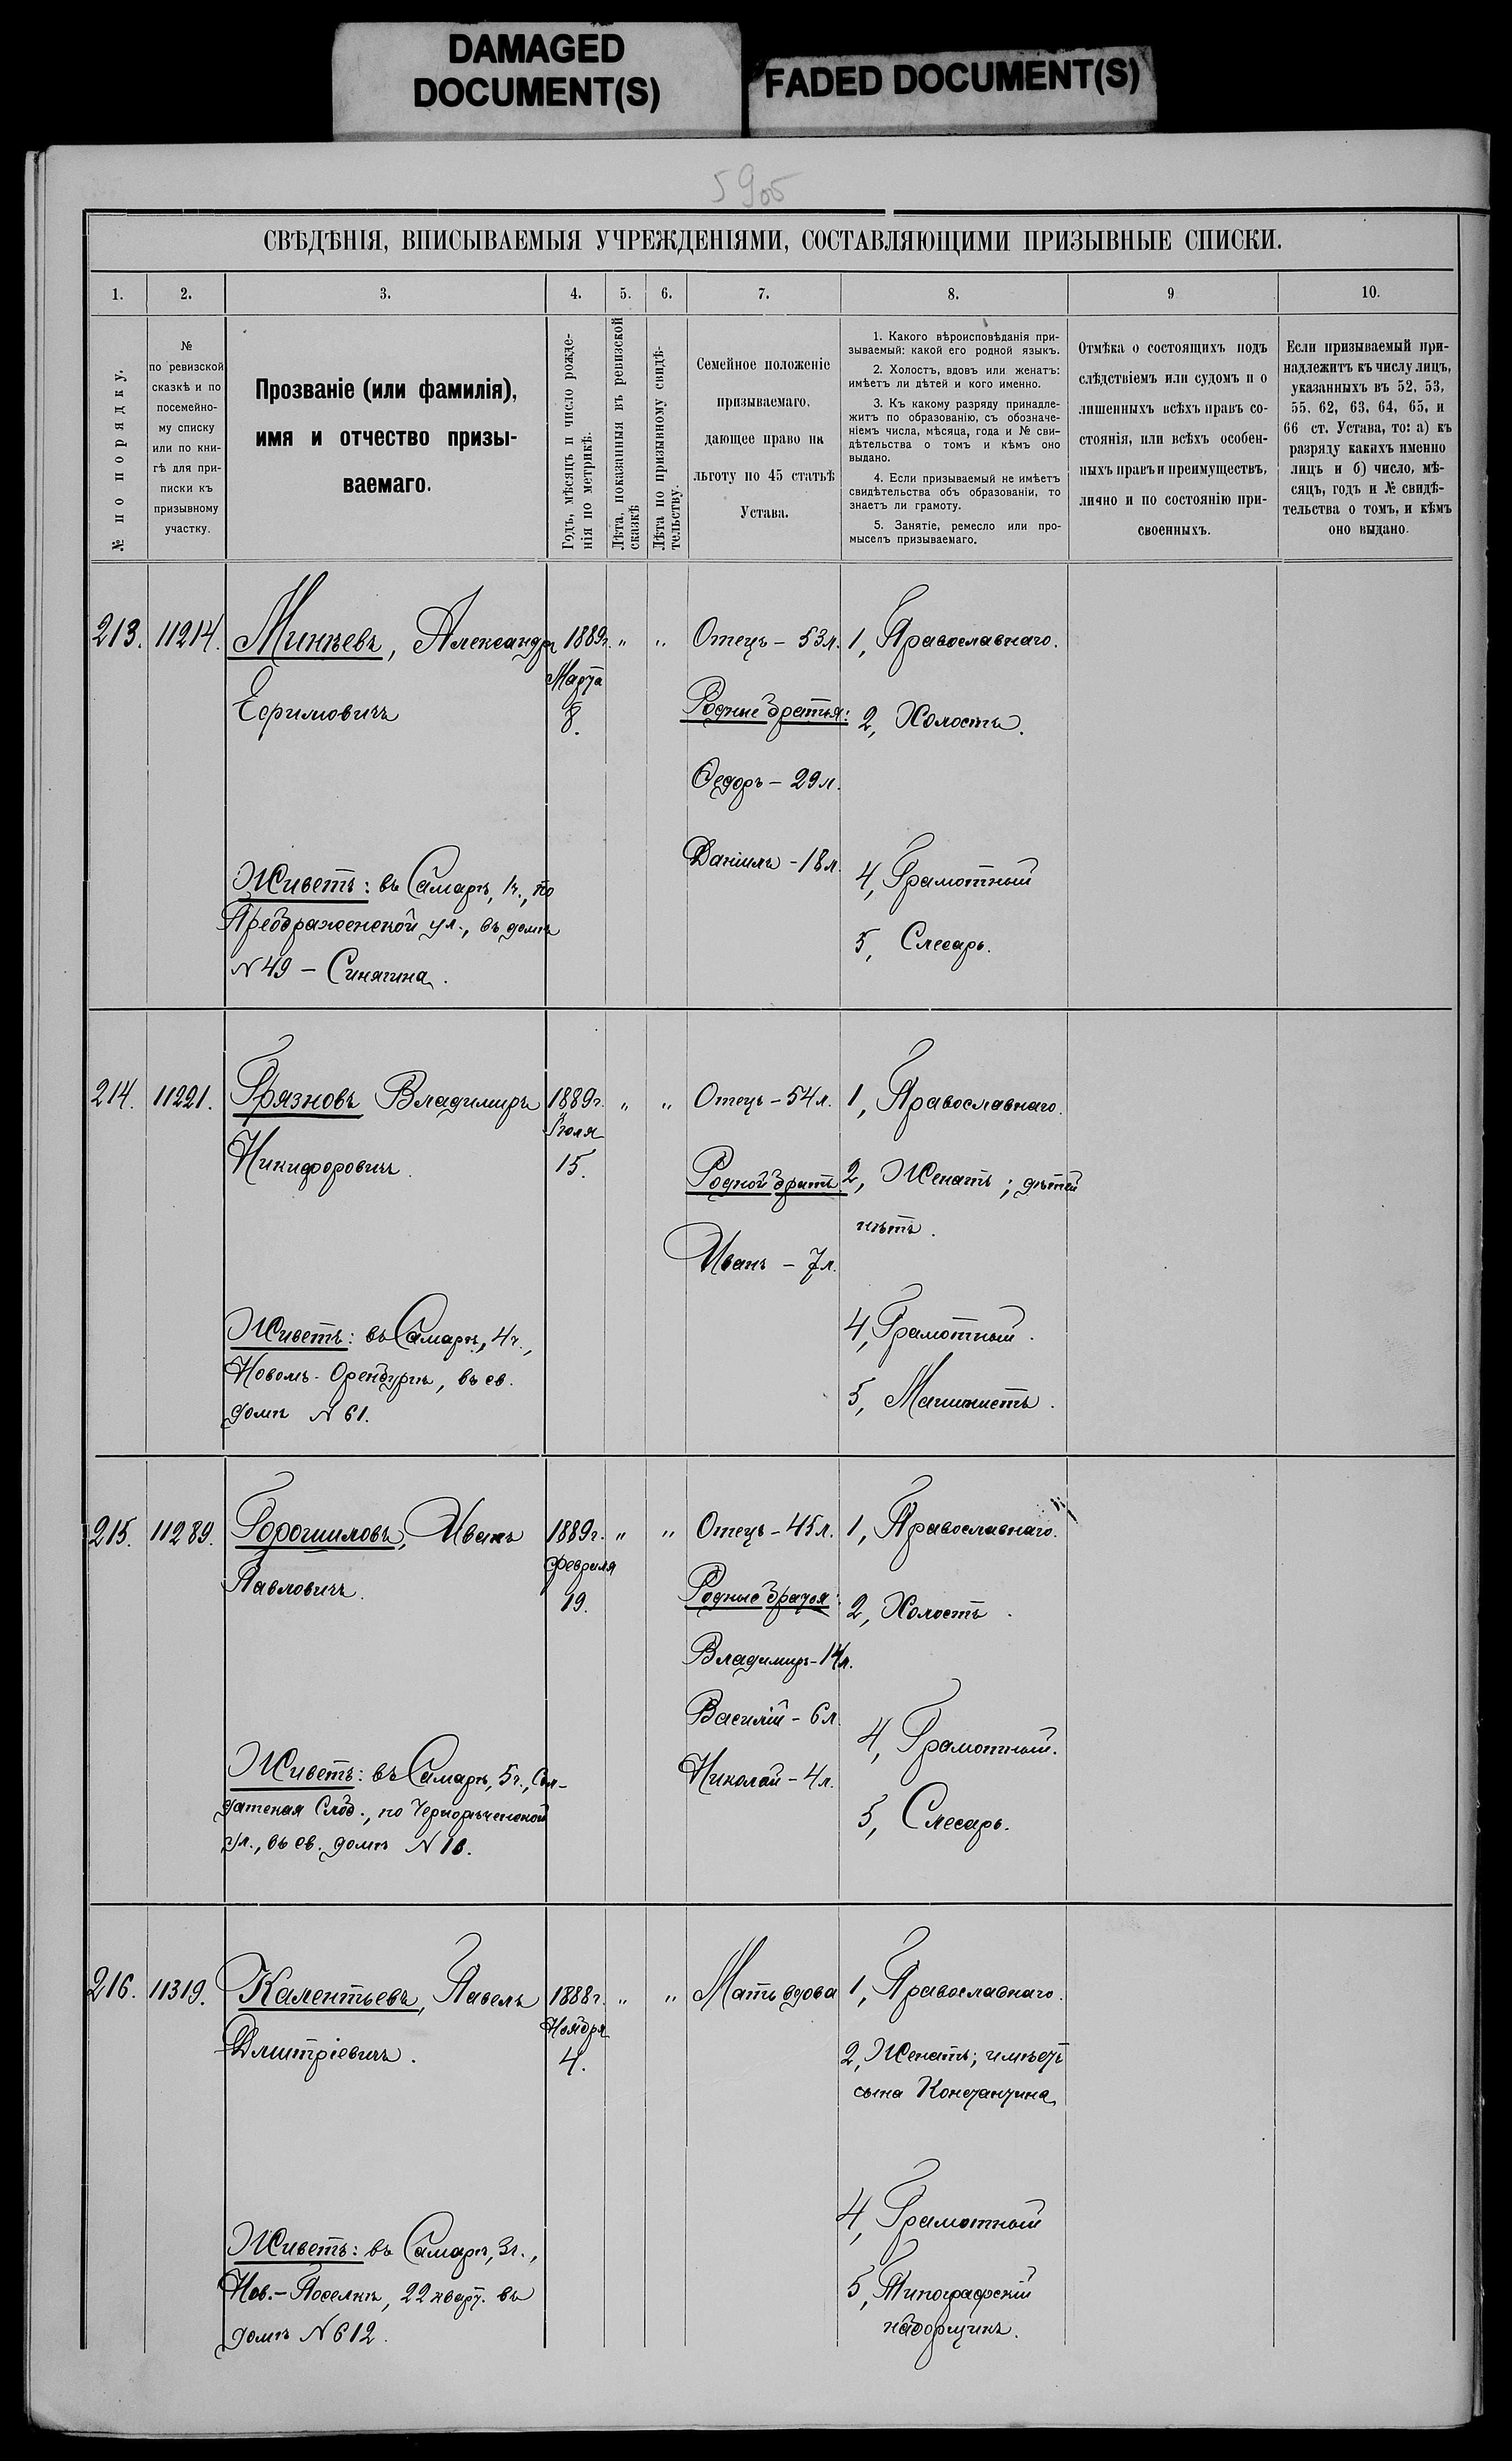 DAMAGED
DOCUMENT(S)
FADED DOCUMENT(S)
5905
СВѢДѢНІЯ, ВПИСЫВАЕМЫЯ УЧРЕЖДЕНІЯМИ, СОСТАВЛЯЮЩИМИ ПРИЗЫВНЫЕ СПИСКИ.
1. 2. 3. 4. 5. 6. 7. 8. 9 10.
№ по порядку.
№
по ревизской
сказкѣ и по
посемейно-
му списку
или по кни-
гѣ для при-
писки къ
призывному
участку.
Прозваніе (или фамилія),
имя и отчество призы-
ваемаго.
Годъ, мѣсяцъ и число рожде-
нія по метрикѣ.
Лѣта, показанныя въ ревизской
сказкѣ
Лѣта по призывному свидѣ-
тельству.
Семейное положеніе
призываемаго,
дающее право на
льготу по 45 статьѣ
Устава.
1. Какого вѣроисповѣданія при-
зываемый: какой его родной языкъ.
2. Холостъ, вдовъ или женатъ:
имѣетъ ли дѣтей и кого именно.
3. Къ какому разряду принадле-
житъ по образованію, съ обозначе-
ніемъ числа, мѣсяца, года и № сви-
дѣтельства о томъ и кѣмъ оно
выдано.
4. Если призываемый не имѣетъ
свидѣтельства объ образованіи, то
знаетъ ли грамоту.
5. Занятіе, ремесло или про-
мыселъ призываемаго.
Отмѣка о состоящихъ подъ
слѣдствіемъ или судомъ и о
лишенныхъ всѣхъ правъ со-
стоянія, или всѣхъ особен-
ныхъ правъ и преимуществъ,
лично и по состоянію при-
своенныхъ.
Если призываемый при-
надлежитъ къ числу лицъ,
указанныхъ въ 52, 53,
55, 62, 63, 64, 65, и
66 ст. Устава, то: а) къ
разряду какихъ именно
лицъ и б) число, мѣ-
сяцъ, годъ и № свидѣ-
тельства о томъ, и кѣмъ
оно выдано.
213. 11214. Минѣевъ, Александръ 1889г. " " Отецъ – 53л. 1, Православнаго.
Марта
Ефимовичъ 8. Родные братья: 2, Холостъ.
Ѳедоръ – 29л.
Даніилъ – 18л.
Живетъ: въ Самарѣ, 1ч., по 4, Грамотный
Преображенской ул., въ домѣ
5, Слесарь.
N 49 – Синягина.
214. 11221. Грязновъ Владимиръ 1889г. " " Отецъ – 54л. 1, Православнаго.
Іюля
Никифоровичъ. 15. Родной братъ 2, Женатъ; дѣтей
нѣтъ.
Иванъ – 7л.
Живетъ: въ Самарѣ, 4ч., 4, Грамотный.
Новомъ-Оренбургѣ, въ св.
5, Машинистъ.
домѣ N 61.
215. 11289. Горошиловъ, Иванъ 1889г. " " Отецъ – 45л. 1, Православнаго.
Февраля
Павловичъ. 19. Родные братья: 2, Холостъ.
Владимиръ – 14л.
Василій – 6л.
4, Грамотный.
Живетъ: въ Самарѣ, 5ч., Сол- Николай – 4л.
датская Слоб., по Чернорѣченской
5, Слесарь.
ул., въ св. домѣ N 16.
216. 11319. Калентьевъ, Павелъ 1888г. " " Мать вдова 1, Православнаго.
Ноября
Дмитріевичъ. 4. 2, Женатъ; имѣетъ
сына Константина
4, Грамотный
Живетъ: въ Самарѣ, 3ч.,
Нов.–Поселкѣ, 22 кварт. въ 5, Типографскій
домѣ N 612. наборщикъ.